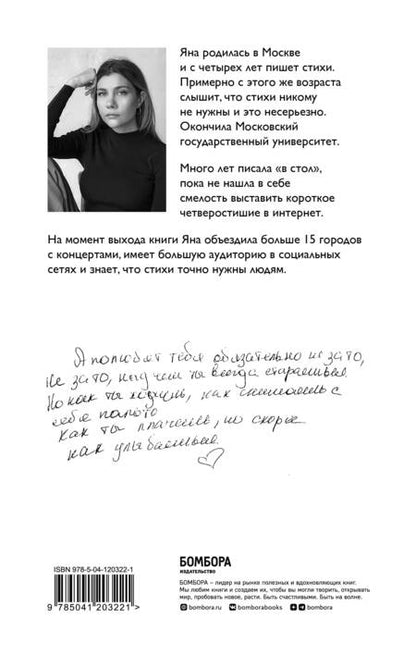 Яна родилась в Москве
и с четырех лет пишет стихи.
Примерно с этого же возраста
слышит, что стихи никому
не нужны и это несерьезно.
Окончила Московский
государственный университет.
Много лет писала «в стол»,
пока не нашла в себе
смелость выставить короткое
четверостишие в интернет.
На момент выхода книги Яна объездила больше 15 городов
с концертами, имеет большую аудиторию в социальных
сетях и знает, что стихи точно нужны людям.
А полюбят тебя обязательно не за то,
Не за то, над чем ты всегда стараешься
Но как ты ходишь, как снимаешь с
себя пальто
Как ты плачешь, но скорее
как улыбаешься
ISBN 978-5-04-120322-1
9 785041 203221 >
БОМБОРА
ИЗДАТЕЛЬСТВО
БОМБОРА – лидер на рынке полезных и вдохновляющих книг.
Мы любим книги и создаем их, чтобы вы могли творить, открывать
мир, пробовать новое, расти. Быть счастливыми. Быть на волне.
bombora.ru bomborabooks bombora